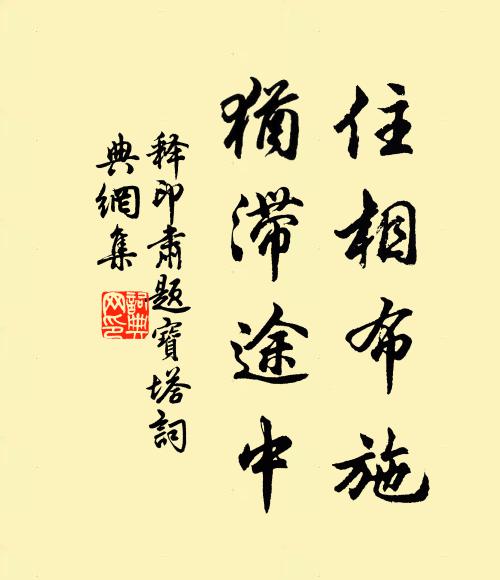 住相布施
猶滯途中
釋印肅題寶塔詞
典網集
詞典网印